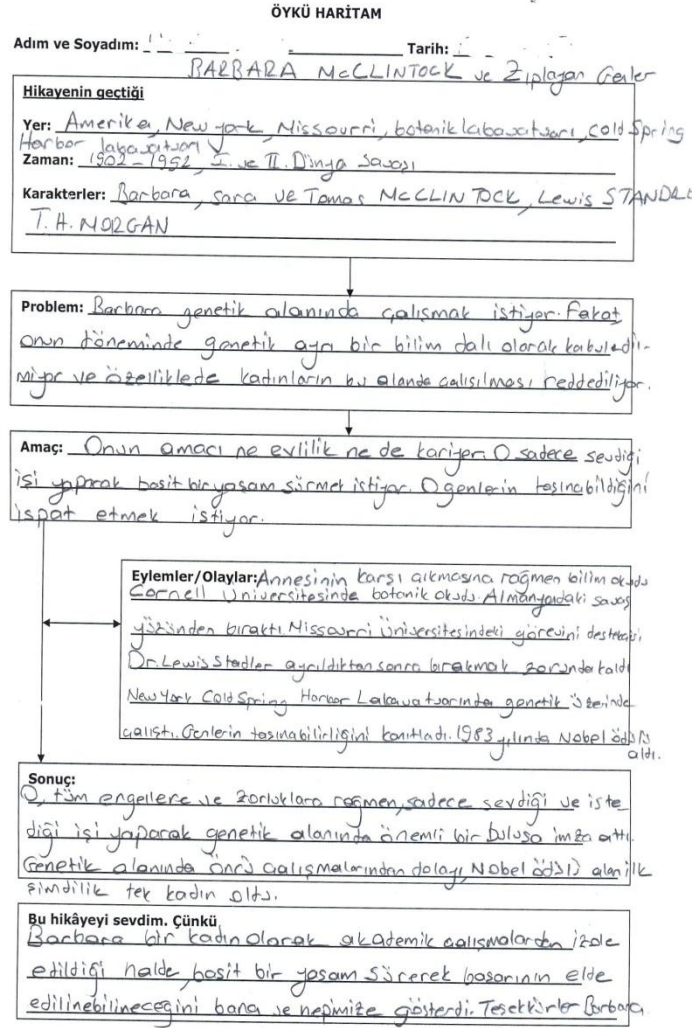 ÖYKÜ HARİTAM
Adım ve Soyadım: Tarih:
BARBARA McCLINTOCK ve Zıplayan Genler
Hikayenin geçtiği
Yer: Amerika, New york, Missourri, botanik labavatuarı, cold Spring
Harbor labavatuarı
Zaman: 1902-1992, I. ve II. Dünya Savaşı
Karakterler: Barbara, sara ve Tomas McCLINTOCK, Lewis STANDLE
T.H. MORGAN
Problem: Barbara genetik alanında çalışmak istiyor. Fakat
onun döneminde genetik ayrı bir bilim dalı olarak kabuledil-
miyor ve özelliklede kadınların bu alanda çalışılması reddediliyor.
Amaç: Onun amacı ne evlilik ne de kariyer. O sadece sevdiği
işi yaparak basit bir yaşam sürmek istiyor. O genlerin taşınabildiğini
ispat etmek istiyor.
Eylemler/Olaylar: Annesinin karşı çıkmasına rağmen bilim okudu
Cornell Üniversitesinde botanik okudu. Almanyadaki savaş
yüzünden bıraktı. Missourri Üniversitesindeki görevini destekçisi
Dr. Lewis Stadler ayrıldıktan sonra bırakmak zorunda kaldı
New York Cold Spring Harbor Labavatuarında genetik üzerinde
çalıştı. Genlerin taşınabilirliğini kanıtladı. 1983 yılında Nobel ödülü
aldı.
Sonuç:
O, tüm engellere ve zorluklara rağmen, sadece sevdiği ve iste
diği işi yaparak genetik alanında önemli bir buluşa imza attı.
Genetik alanında öncü çalışmalarından dolayı, Nobel ödülü alan ilk
şimdilik tek kadın oldu.
Bu hikâyeyi sevdim. Çünkü
Barbara bir kadın olarak akademik çalışmalardan izole
edildiği halde, basit bir yaşam sürerek başarının elde
edilinebilineceğini bana ve hepimize gösterdi. Teşekkürler Barbara